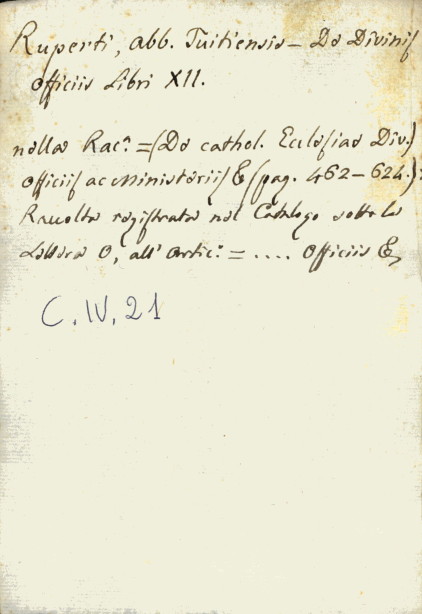 Ruperti, abb. Tuitiensis – De Divinis
officiis Libri XII.
nella Rac.ª = (De cathol. Ecclesiae Div.)
officiis ac Ministeriis &(pag. 462–624.):
Raccolta registrata nel Catalogo sotto la
Lettera O, all' artic.º = .... officiis &,
C. IV. 21